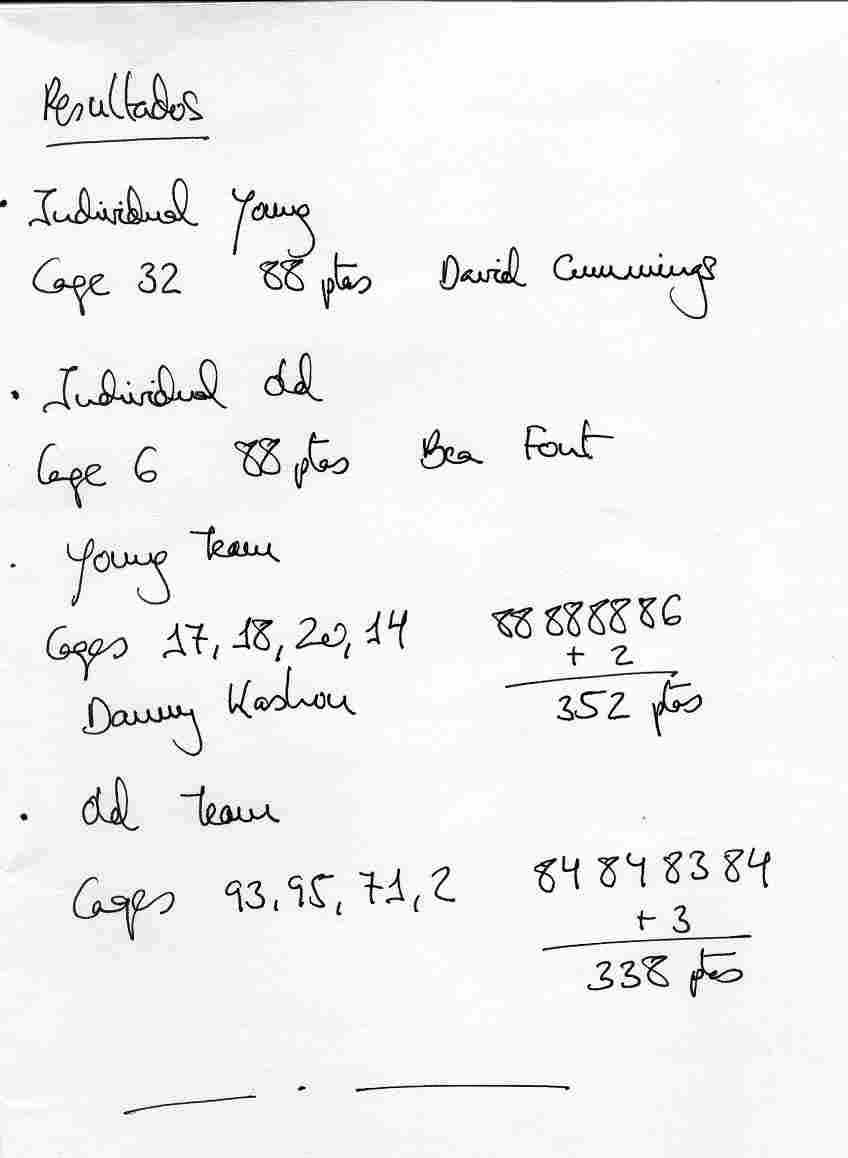 Resultados
• Individual Young
Cage 32 88 ptos David Cummings
• Individual Old
Cage 6 88 ptos Bea Font
• Young Team
Cages 17, 18, 20, 14 88 88 88 86
+ 2
Danny Kashou 352 ptos
• Old Team
Cages 93, 95, 71, 2 84 84 83 84
+ 3
338 ptos